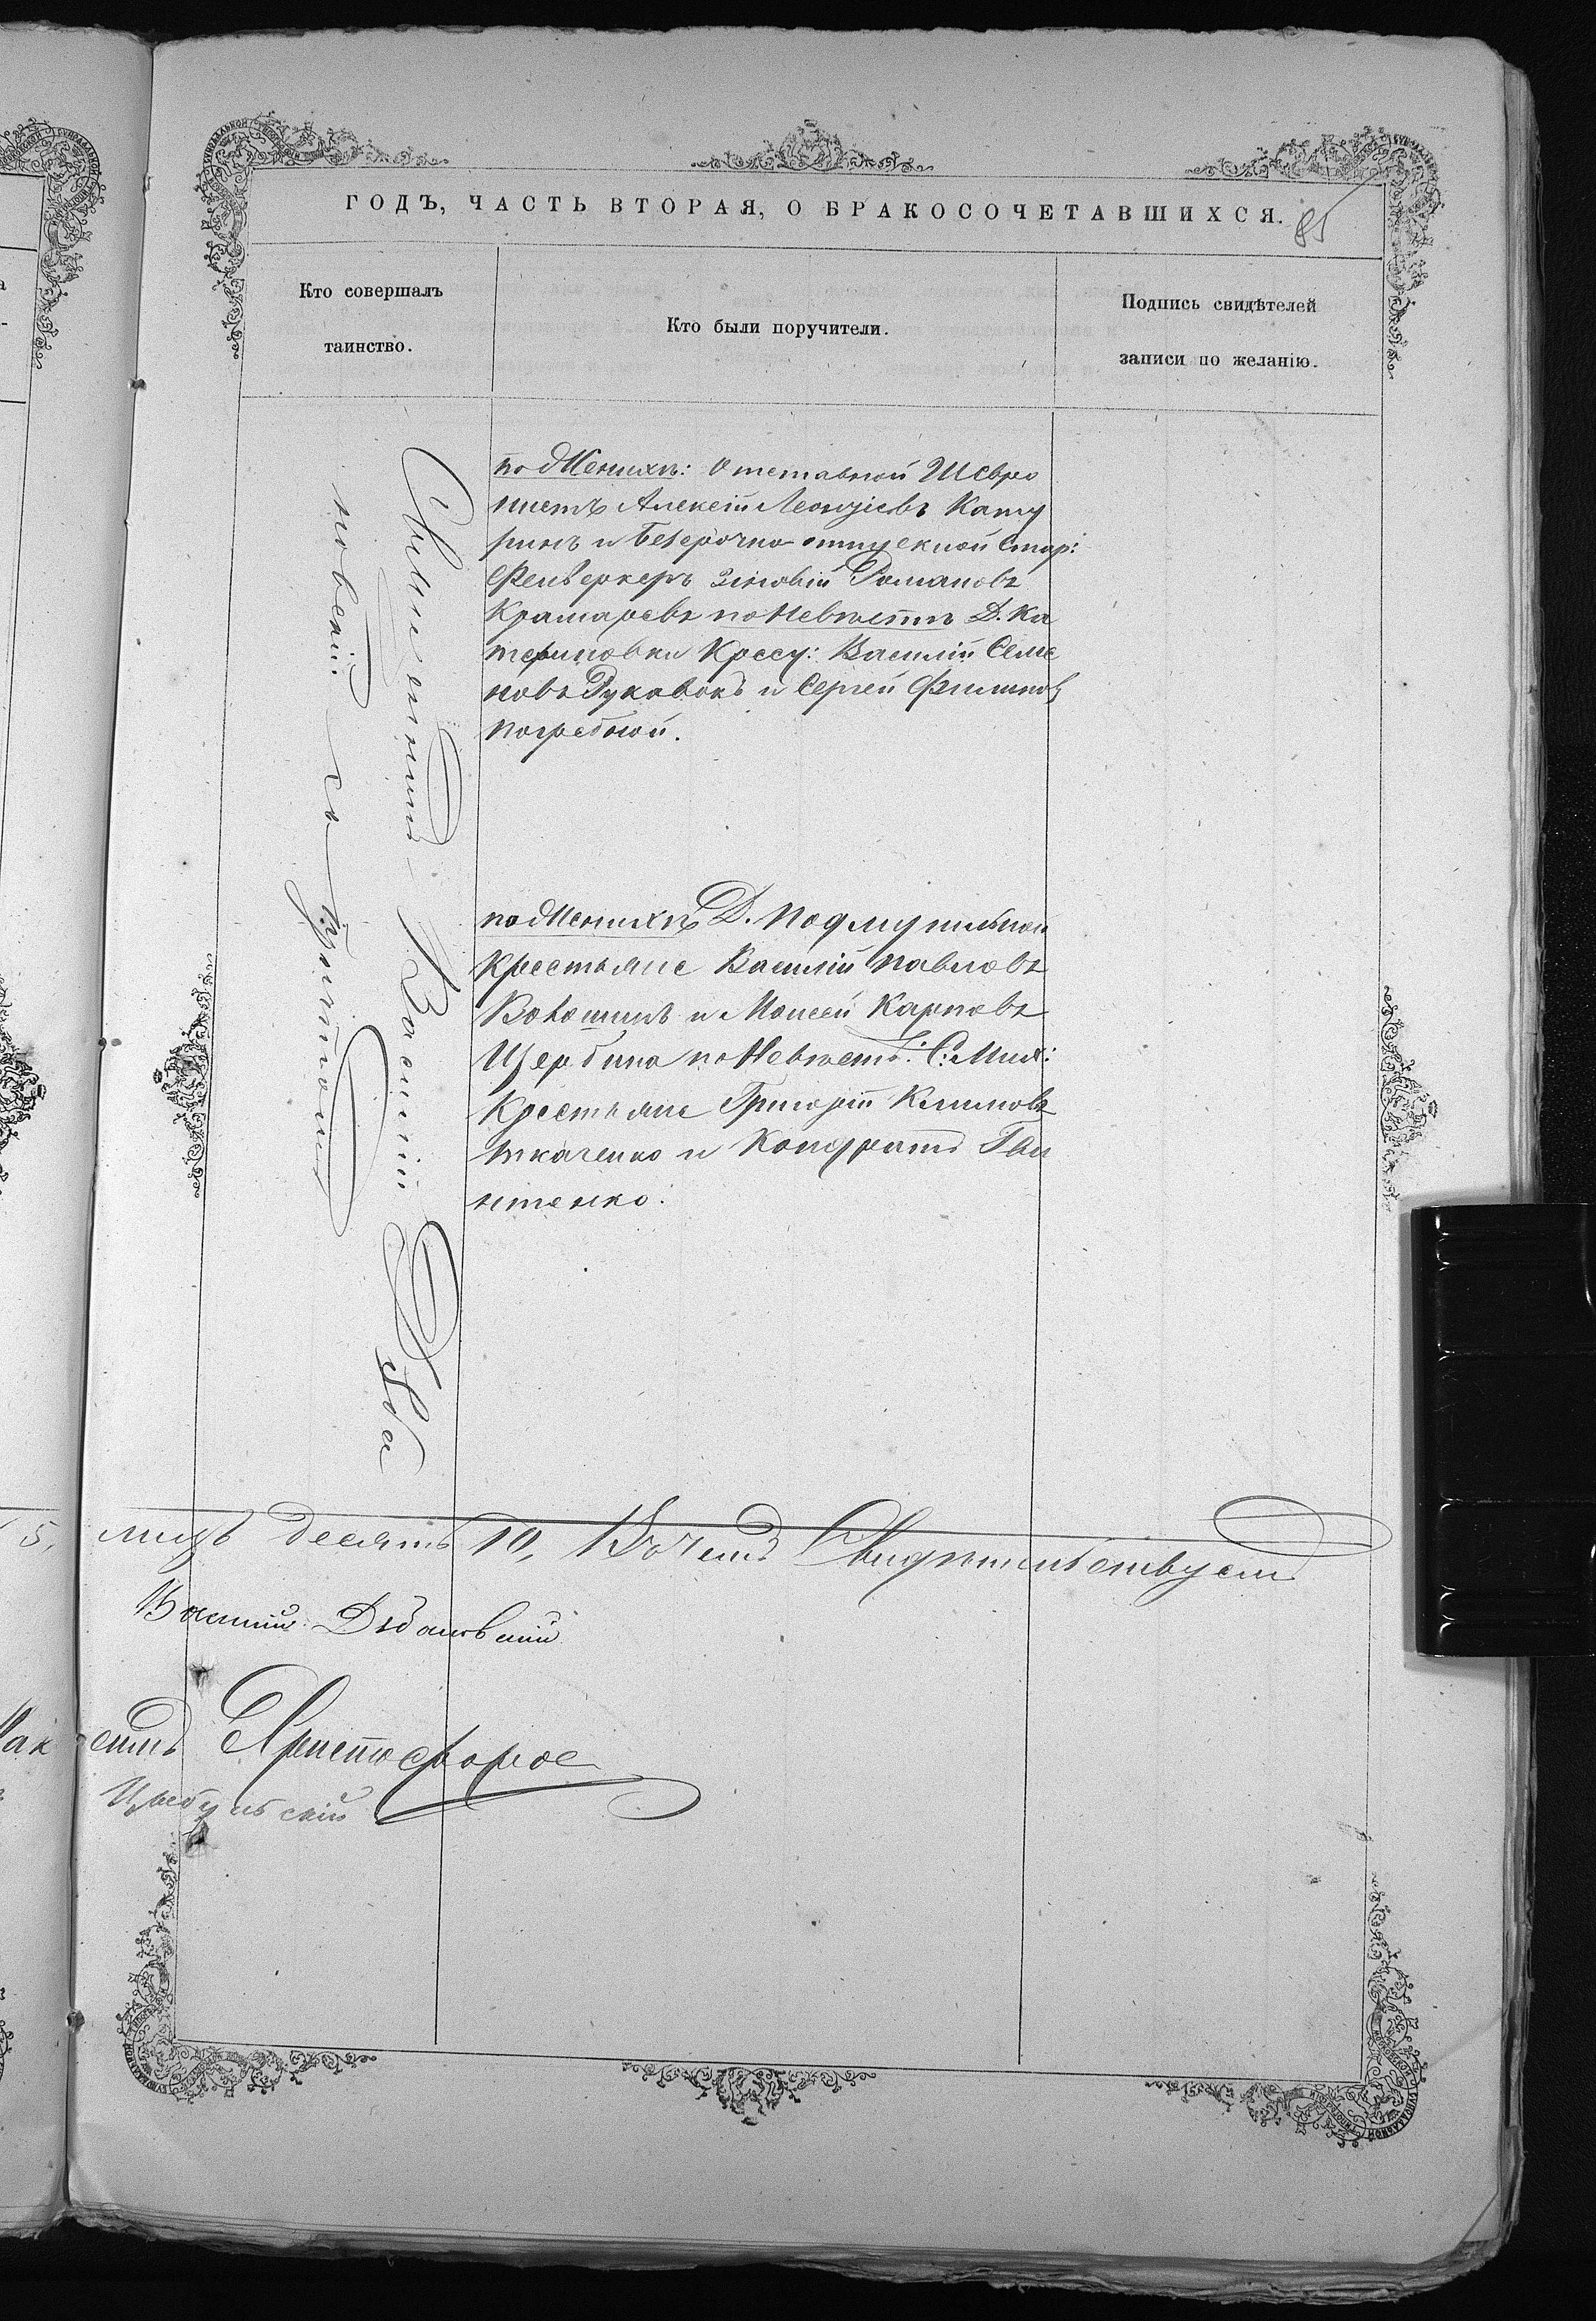 ГОДЪ, ЧАСТЬ ВТОРАЯ, О БРАКОСОЧЕТАВШИХСЯ.
85
Кто совершалъ
таинство.
Кто были поручители.
Подпись свидѣтелей
записи по желанію.
Священникъ Василій Дзба
новскій съ
по Женихѣ: Отставной Шевро
нистъ Алексій Леонтіевъ Кату
ринъ и безсрочно-отпускной Стар:
Фейверкеръ Зиновій Романовъ
Крамаревъ по Невѣстѣ Д. Ка
териновки Кресу: Василій Семе
новъ Рукавокъ и Сергей Филиповъ
Погребной.
по Женихѣ Д. Подмушильной
Крестьяне Василій Павловъ
Волошинъ и Моисей Карповъ
Щербина по Невѣст: С. Мих:
Крестьяне Григорій Климовъ
Ткаченко и Кондратъ Гви
нтенко.
5,
лицъ десять 10, Вочемъ Свидѣтельствуемъ
Василій Дзбановскій
Христофоръ
Цыбульскій